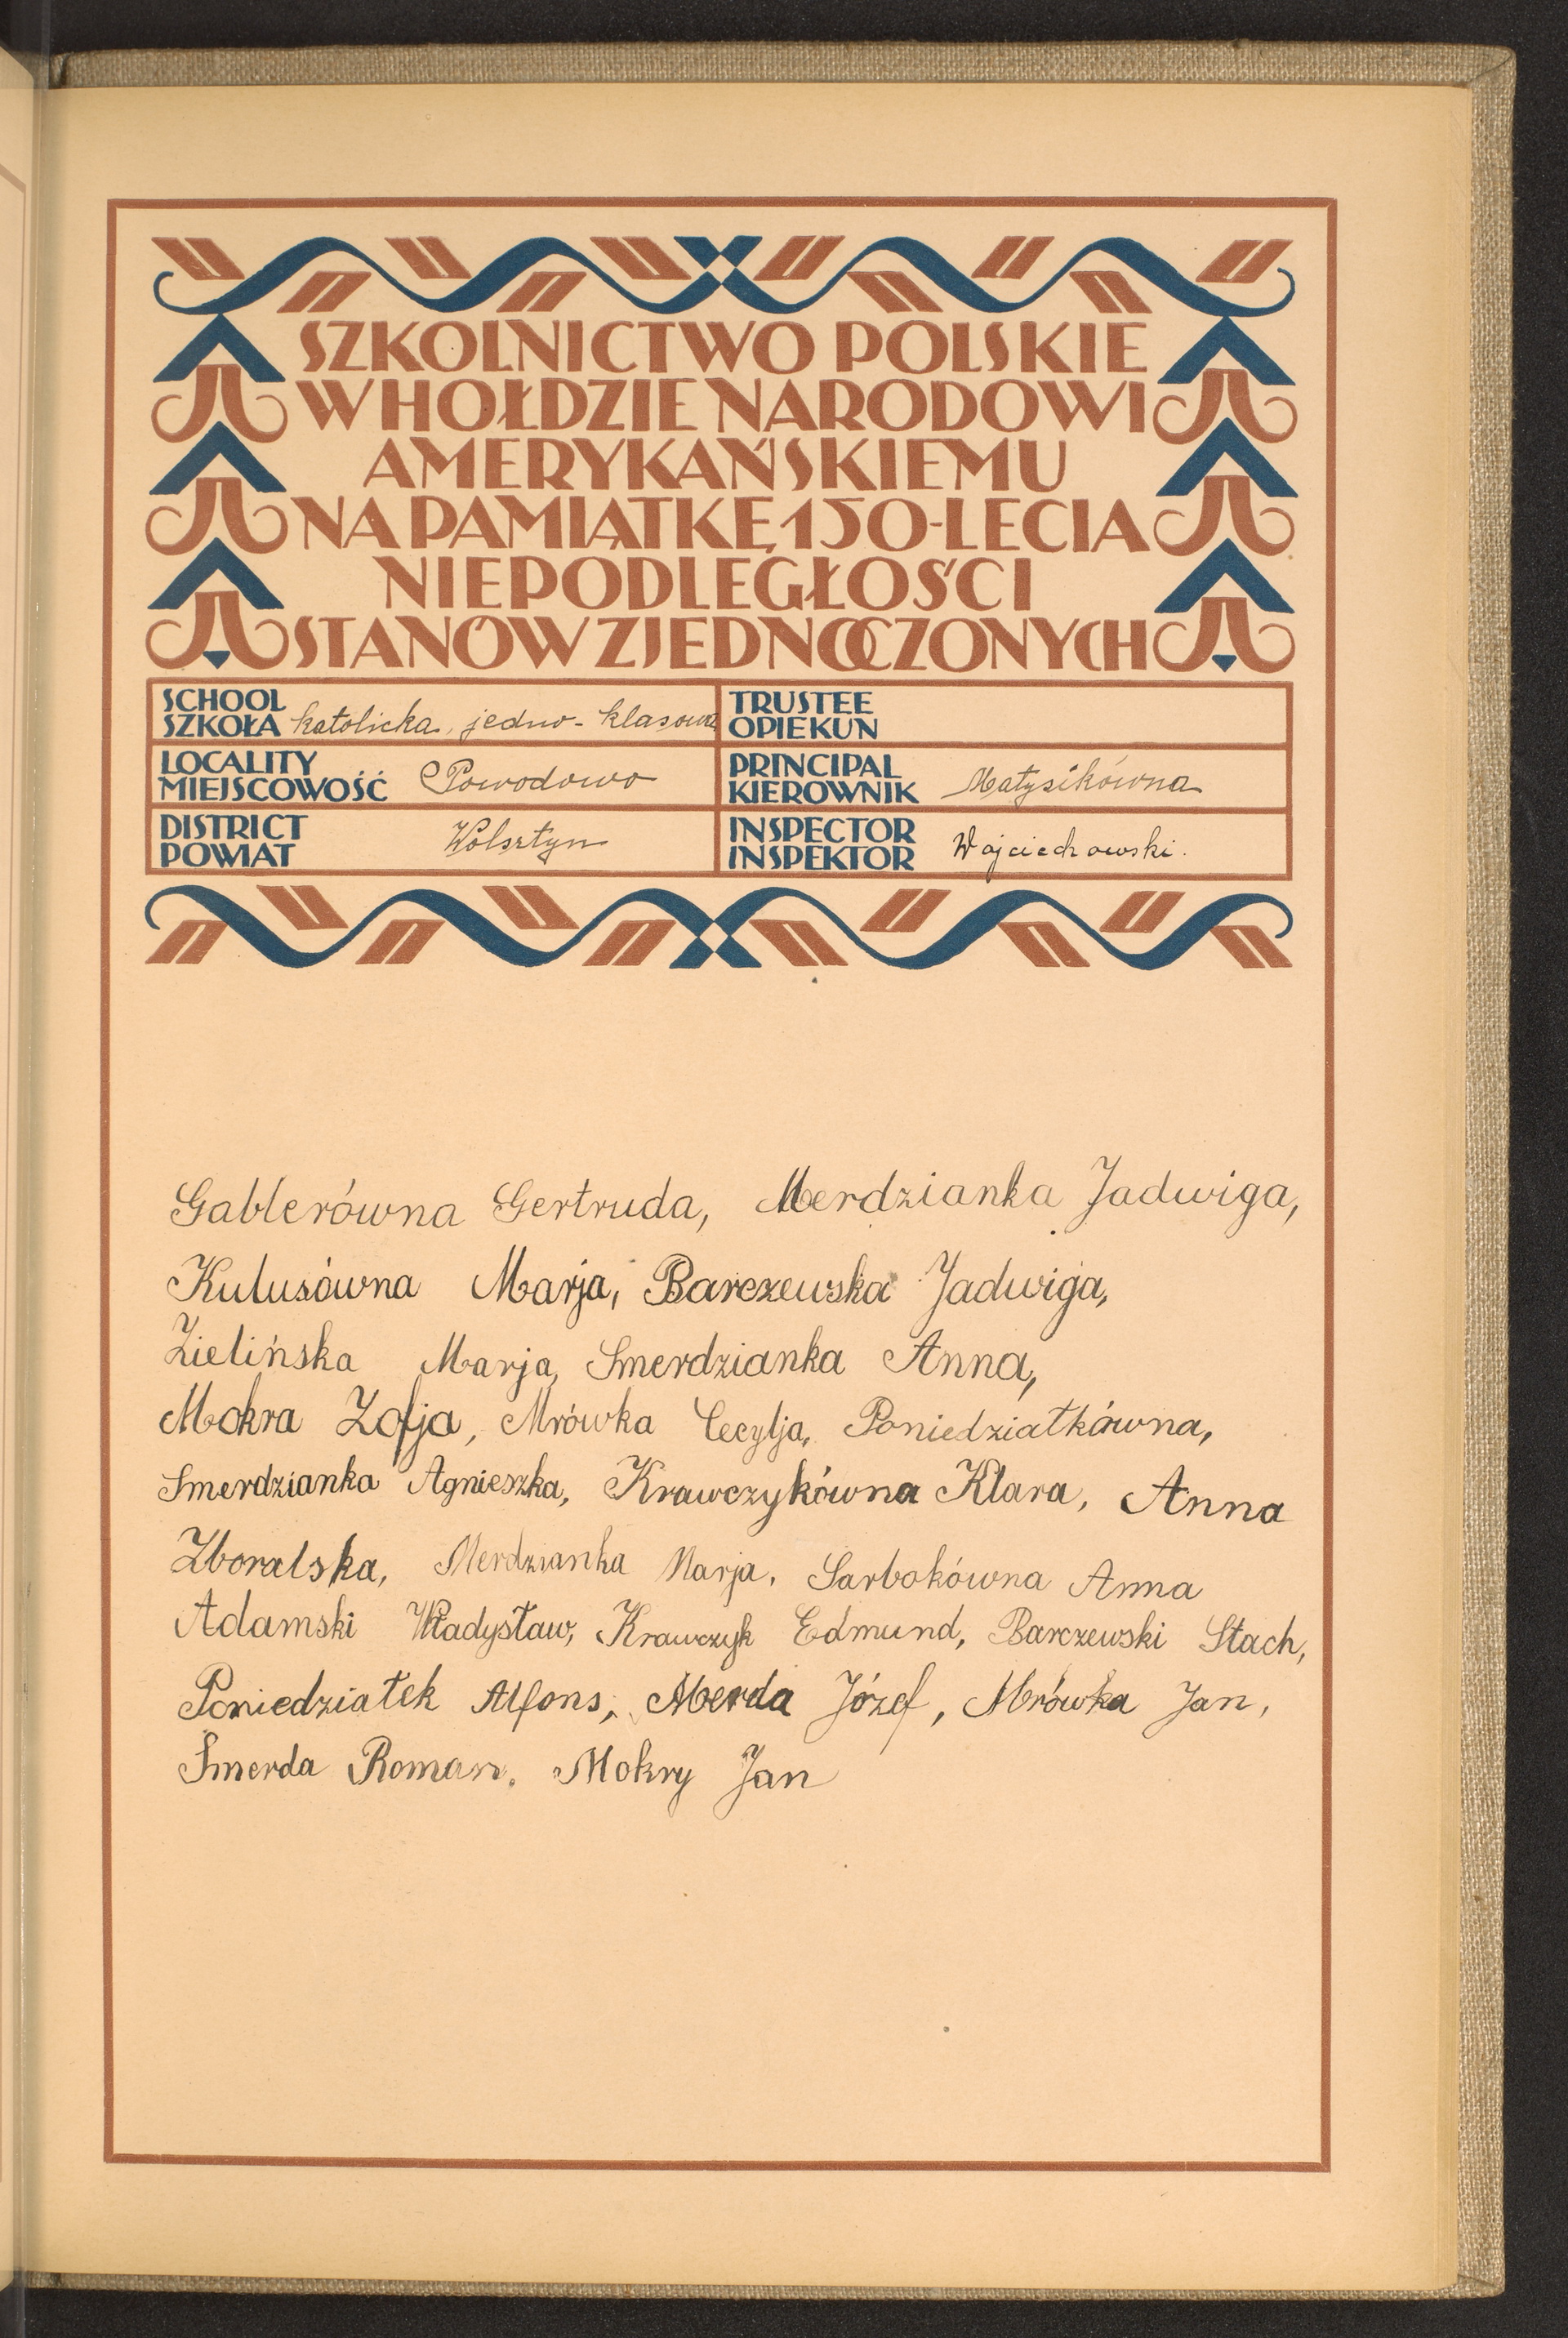 SZKOLNICTWO POLSKIE
W HOŁDZIE NARODOWI
AMERYKAŃSKIEMU
NA PAMIĄTKĘ 150-LECIA
NIEPODLEGŁOŚCI
STANÓW ZJEDNOCZONYCH
SCHOOL
SZKOŁA katolicka, jedno-klasowa
TRUSTEE
OPIEKUN
LOCALITY
MIEJSCOWOŚĆ Powodowo
PRINCIPAL
KIEROWNIK Matysikówna
DISTRICT
POWIAT Wolsztyn
INSPECTOR
INSPEKTOR Wojciechowski.
Gablerówna Gertruda, Merdzianka Jadwiga,
Kulusówna Marja, Barczewska Jadwiga,
Zielińska Marja, Smerdzianka Anna,
Mokra Zofja, Mrówka Cecylja, Poniedziałkówna,
Smerdzianka Agnieszka, Krawczykówna Klara, Anna
Zboralska, Merdzianka Marja, Sarbokówna Anna
Adamski Władysław, Krawczyk Edmund, Barczewski Stach,
Poniedziałek Alfons, Merda Józef, Mrówka Jan,
Smerda Roman. Mokry Jan